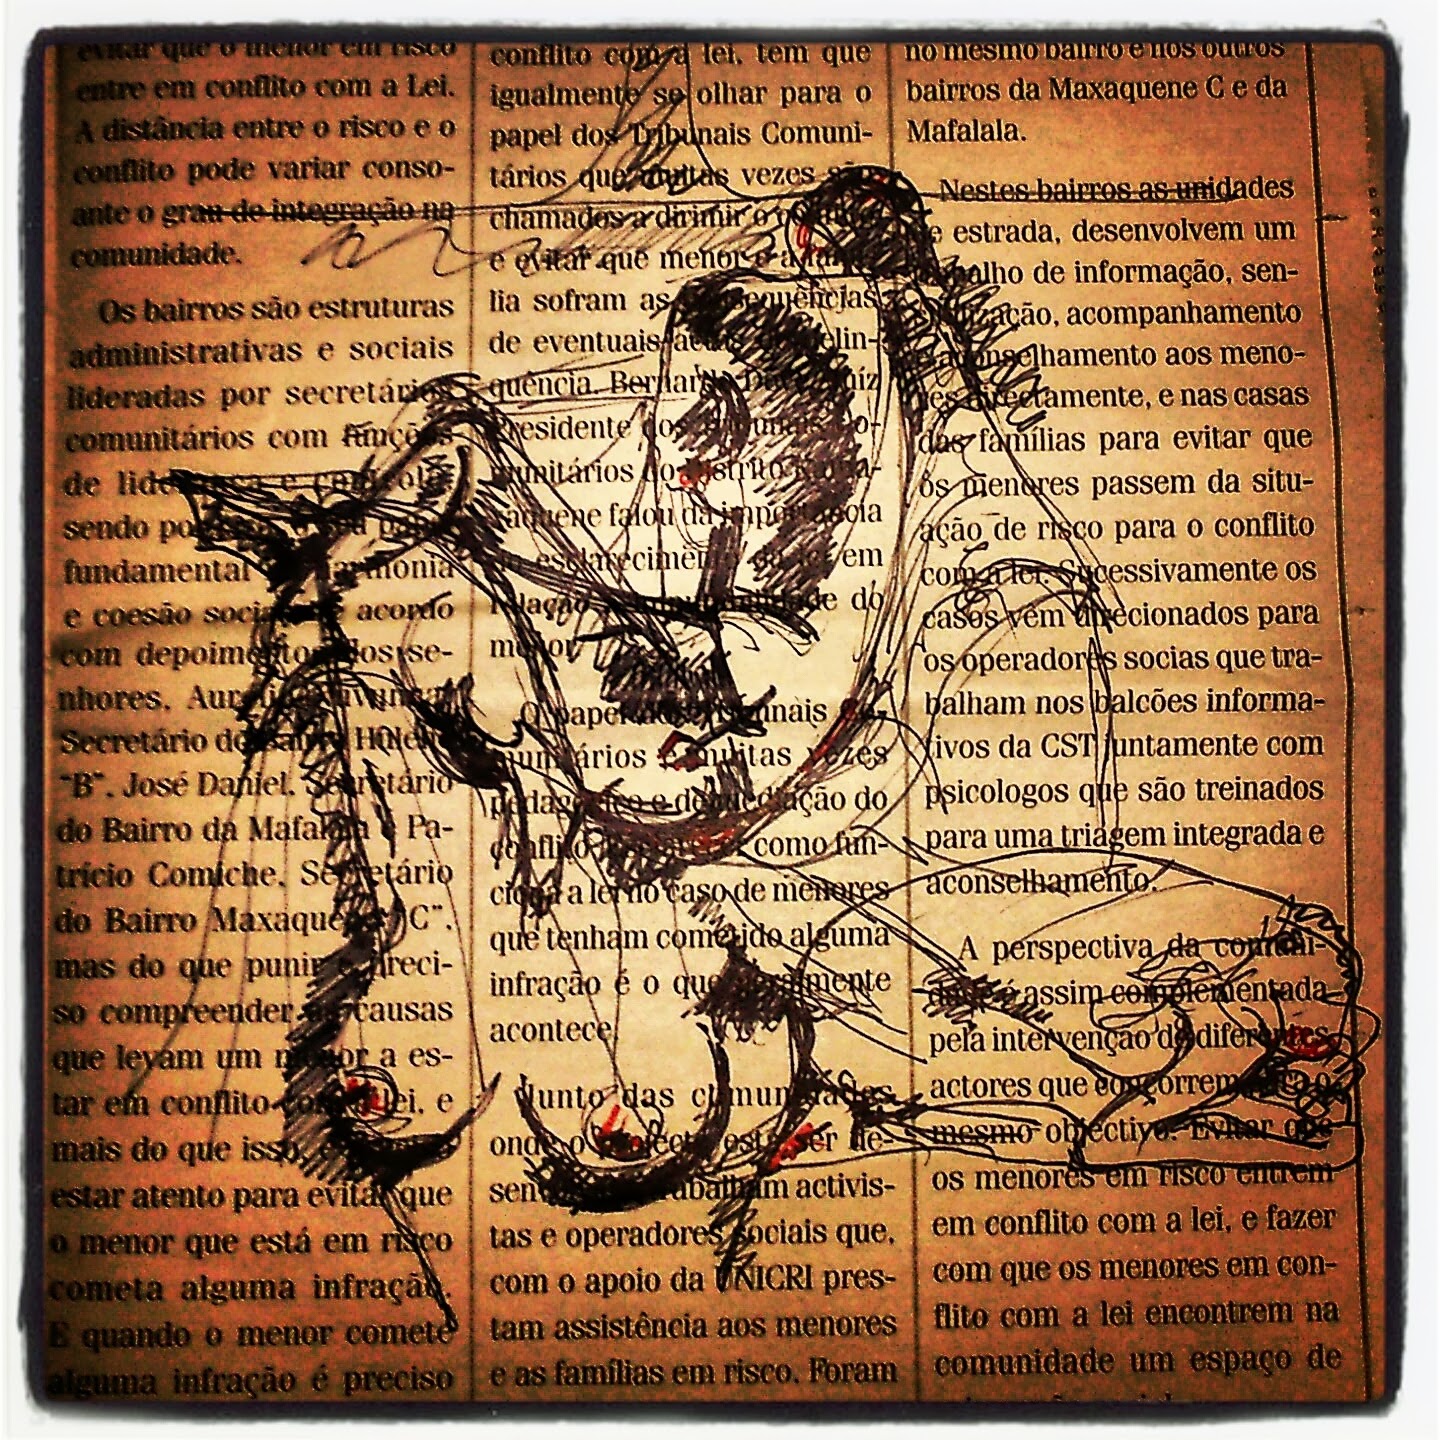 evitar que o menor em risco
entre em conflito com a Lei.
A distância entre o risco e o
conflito pode variar conso-
ante o grau de integração na
comunidade.
Os bairros são estruturas
administrativas e sociais
lideradas por secretários
comunitários com funções
de liderança e
sendo
fundamental harmonia
e coesão social acordo
com depoimentos dos se-
nhores,
Secretário do Bairro
"B". José Daniel, Secretário
do Bairro da Mafalala e Pa-
trício Comiche, Secretário
do Bairro Maxaquene "C",
mas do que punir é preci-
so compreender as causas
que levam um menor a es-
tar em conflito com a lei, e
mais do que isso,
estar atento para evitar que
o menor que está em risco
cometa alguma infração.
E quando o menor comete
alguma infração é preciso
conflito com a lei, tem que
igualmente se olhar para o
papel dos Tribunais Comuni-
tários que muitas vezes são
chamados a dirimir o
e evitar que menor e a famí-
lia sofram as consequências
de eventuais actos de delin-
quência. Bernardo Juíz
Presidente dos Tribunais Co-
munitários do distrito
falou da importância
do esclarecimento da lei em
relação do
menor.
O papel dos Tribunais Co-
munitários é muitas vezes
pedagógico e de mediação do
conflito como fun-
ciona a lei no caso de menores
que tenham cometido alguma
infração é o que geralmente
acontece.
Junto das comunidades
onde o projecto está a ser de-
trabalham activis-
tas e operadores sociais que,
com o apoio da UNICRI pres-
tam assistência aos menores
e as famílias em risco. Foram
no mesmo bairro e nos outros
bairros da Maxaquene C e da
Mafalala.
Nestes bairros as unidades
de estrada, desenvolvem um
trabalho de informação, sen-
sibilização, acompanhamento
e aconselhamento aos meno-
res directamente, e nas casas
das famílias para evitar que
os menores passem da situ-
ação de risco para o conflito
com a lei. Sucessivamente os
casos vêm direcionados para
os operadores socias que tra-
balham nos balcões informa-
tivos da CST juntamente com
psicologos que são treinados
para uma triagem integrada e
aconselhamento.
A perspectiva da comuni-
dade é assim complementada
pela intervenção de diferentes
actores que concorrem para o
mesmo objectivo. Evitar que
os menores em risco entrem
em conflito com a lei, e fazer
com que os menores em con-
flito com a lei encontrem na
comunidade um espaço de